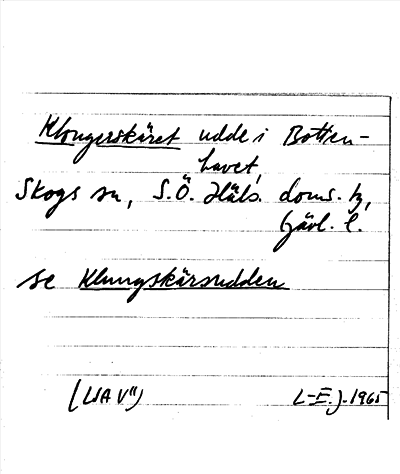 Klongerskäret udde i Botten-
havet,
Skogs sn, S.Ö. Häls. doms. tg,
Gävl. l.
se Klungskärsudden
(LSA V11) L-E.J. 1965